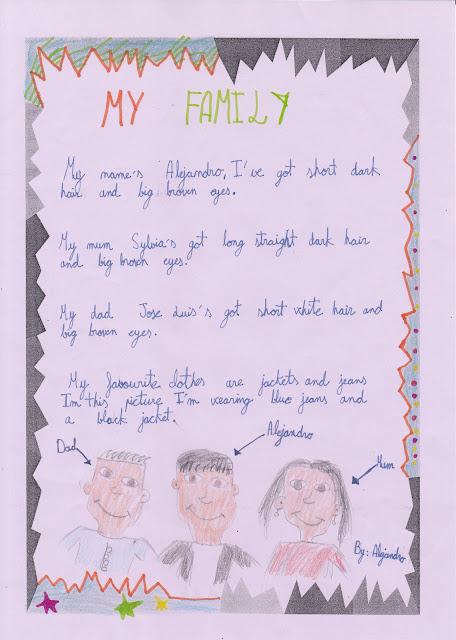 MY FAMILY
My name's Alejandro, I've got short dark
hair and big brown eyes.
My mum Sylvia's got long straight dark hair
and big brown eyes.
My dad Jose Luis's got short white hair and
big brown eyes.
My favourite clothes are jackets and jeans
I'm this picture I'm wearing blue jeans and
a black jacket.
Dad
Alejandro
Mum
By: Alejandro